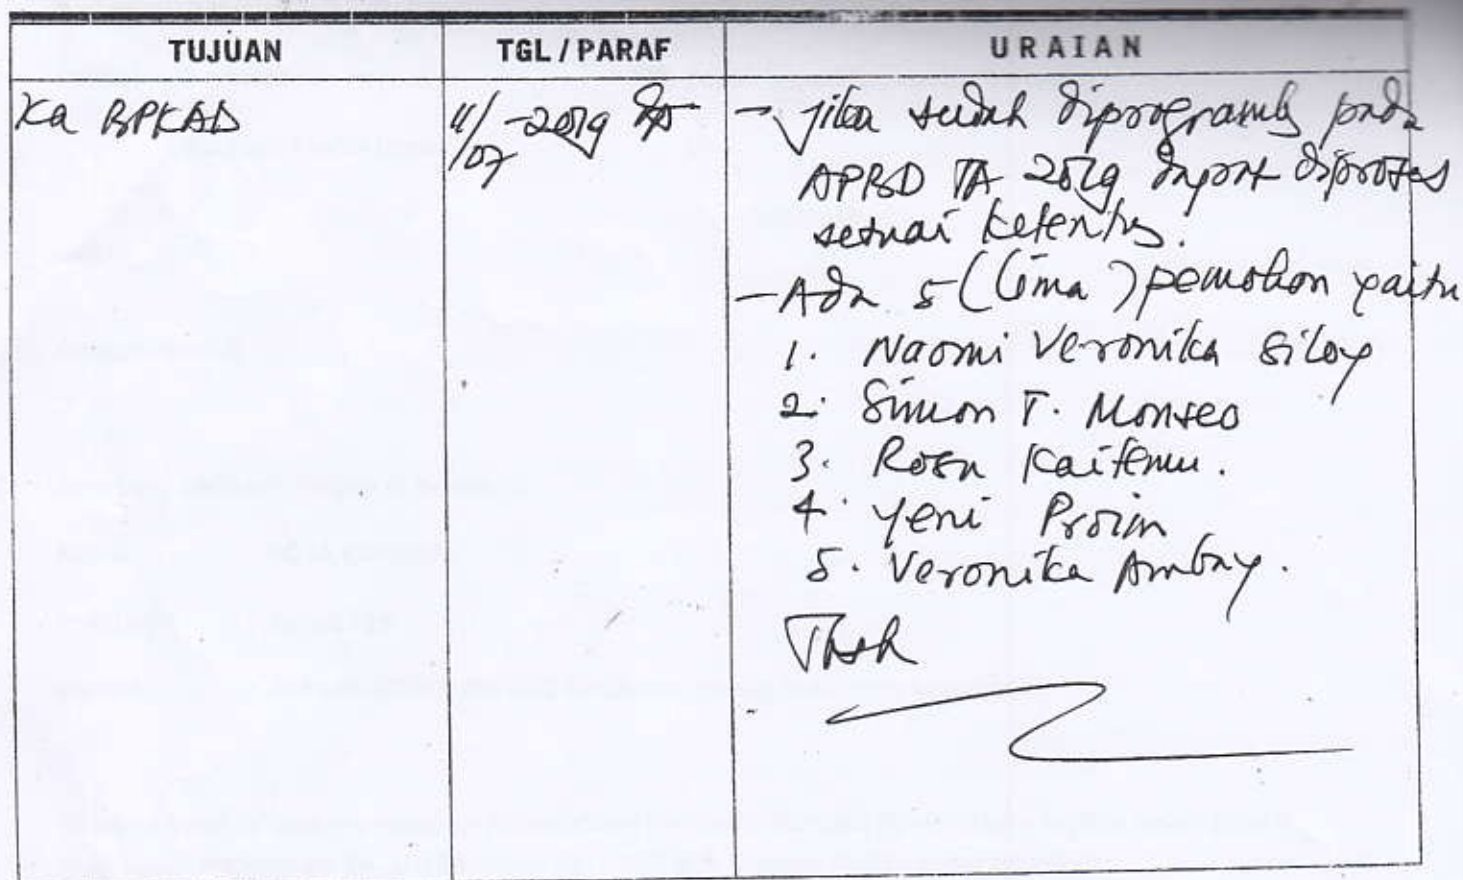 TUJUAN TGL / PARAF URAIAN
Ka BPKAD 11/07-2019 - jika sudah diprogramkan pada
APBD TA 2019 dapat diproses
sesuai ketentuan.
- Ada 5 (lima) pemohon yaitu
1. Naomi Veronika Siloy
2. Simon T. Monseo
3. Rosa Kaitemu.
4. Yeni Proim
5. Veronika Ambay.